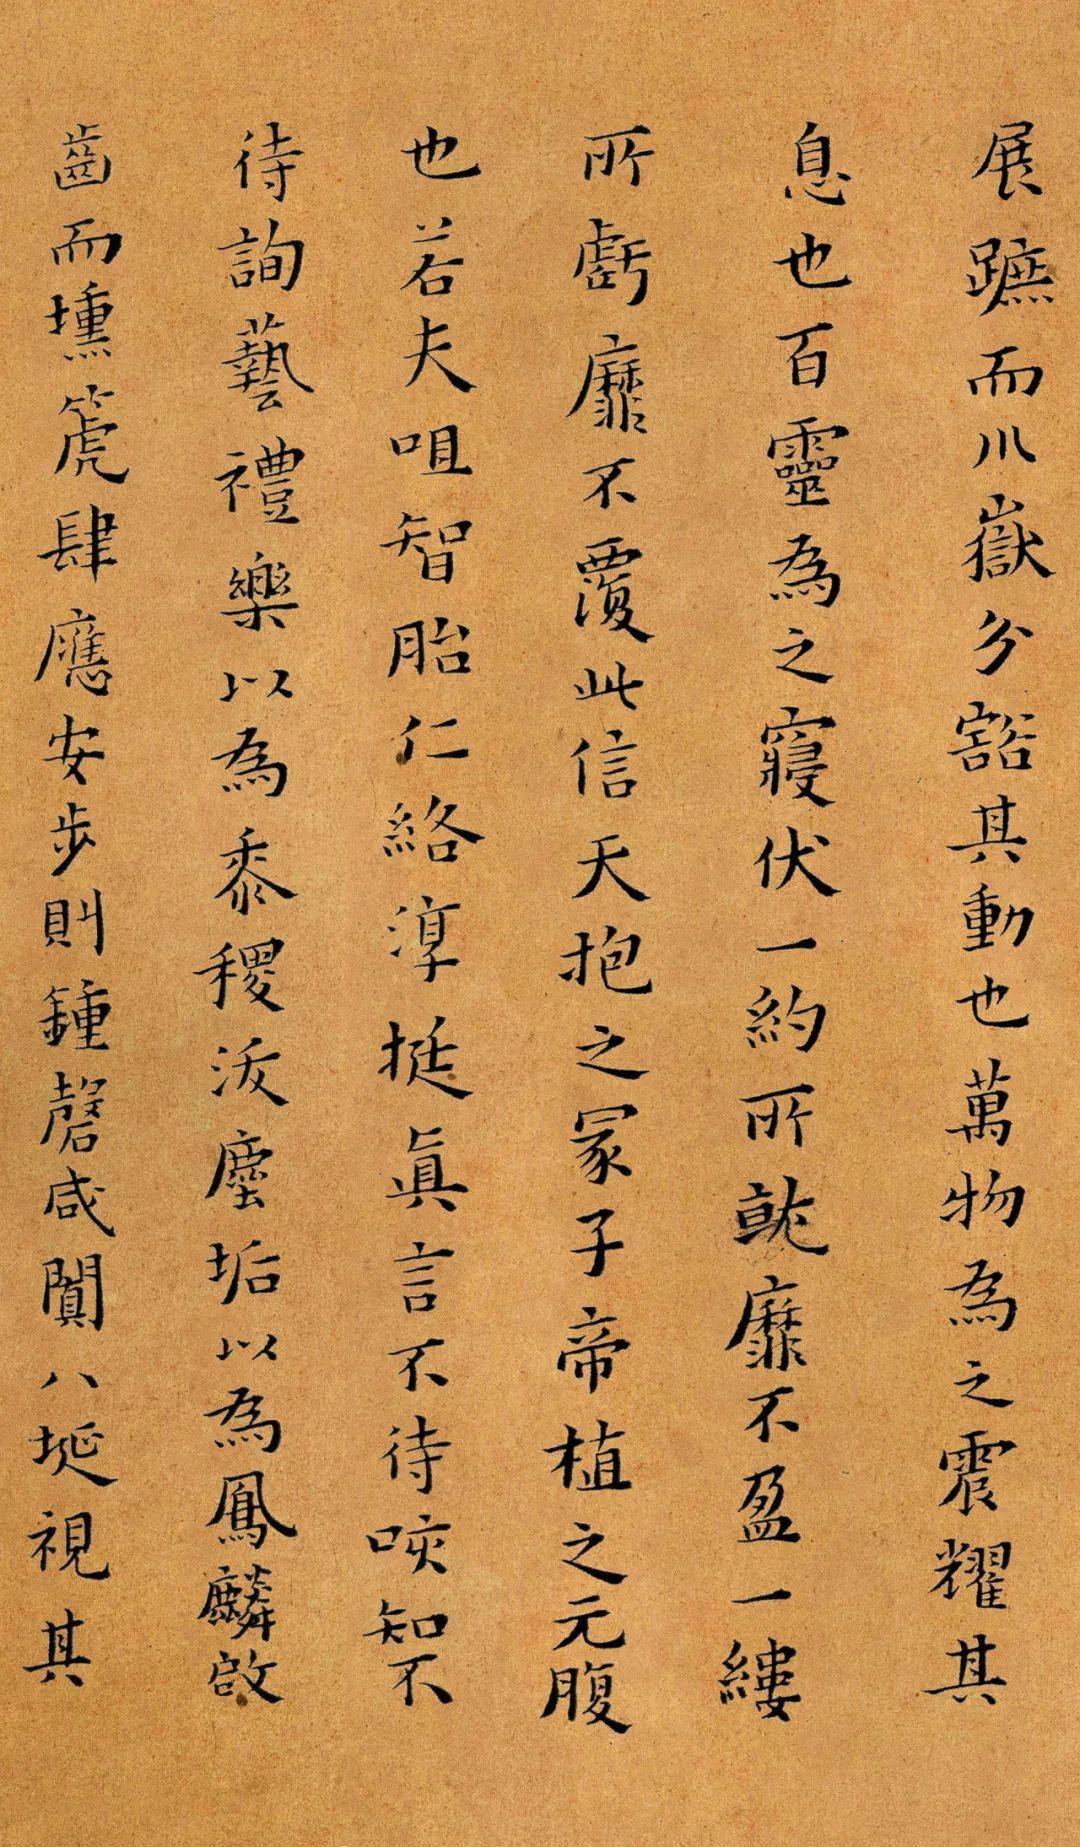 展蹠而川嶽分豁其動也萬物為之震耀其
息也百靈為之寢伏一約所就靡不盈一縷
所虧靡不覆此信天抱之冢子帝植之元腹
也若夫咀智胎仁絡淳挺眞言不待咳知不
待詢藝禮樂以為黍稷泼塵垢以為鳳麟啟
齒而壎箎肆應安步則鍾磬咸闐八埏視其